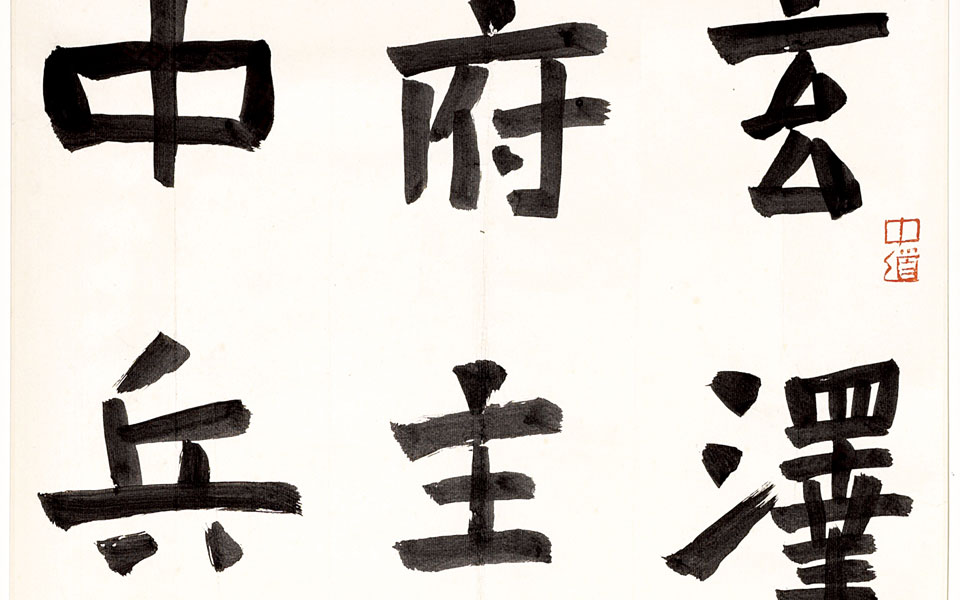 玄澤
府主
中兵
中道